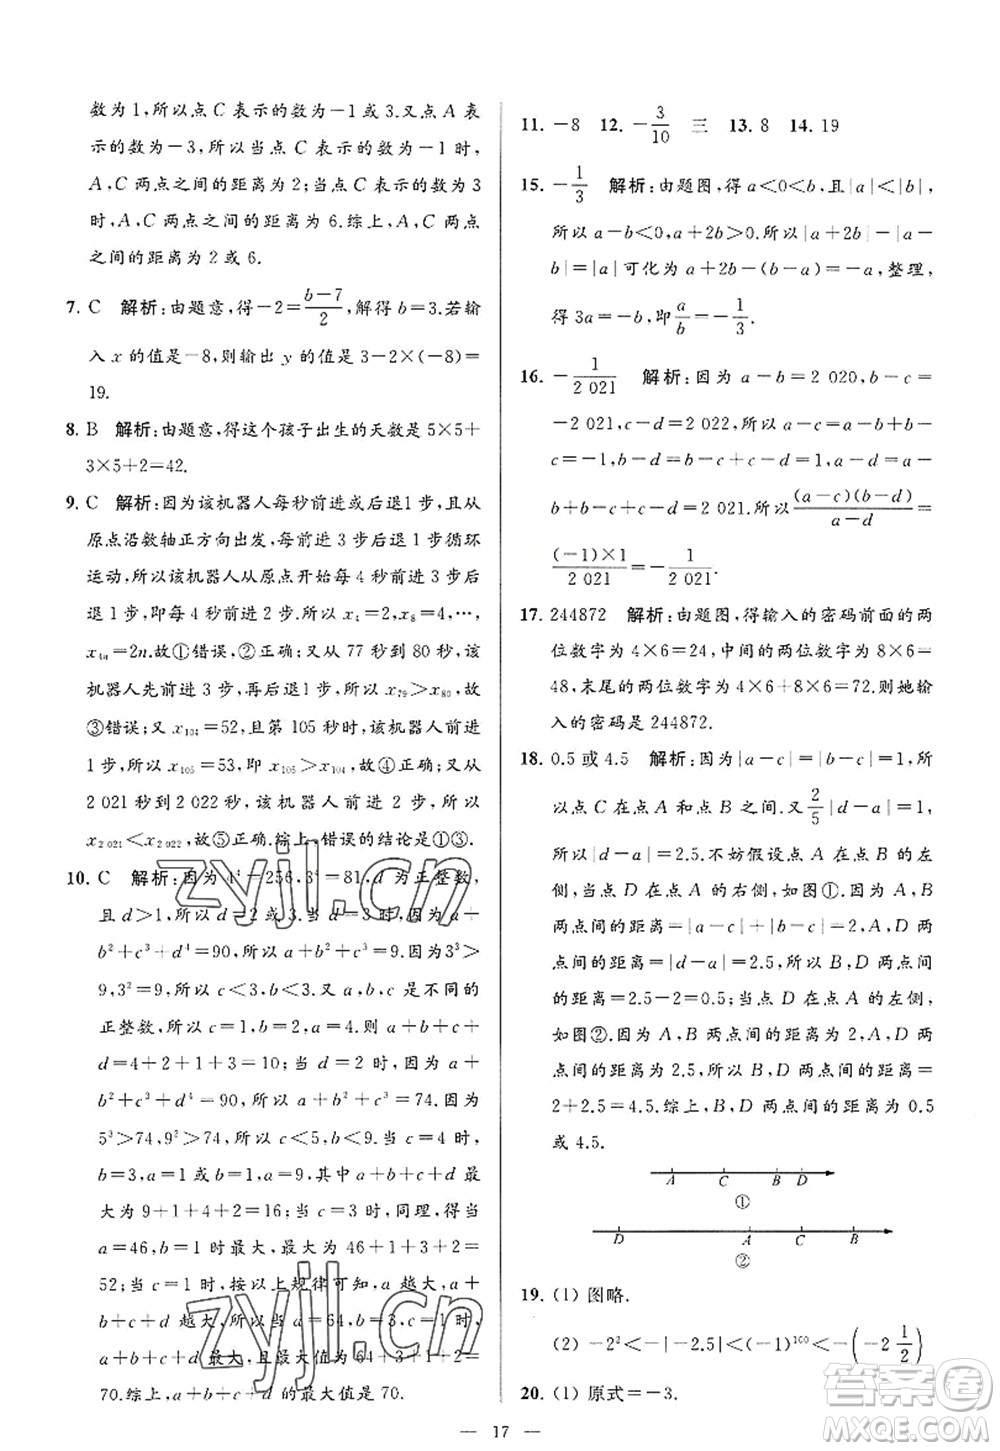 数为 1,所以点 C 表示的数为－1 或 3.又点 A 表
示的数为－3,所以当点 C 表示的数为－1 时,
A,C 两点之间的距离为 2;当点 C 表示的数为 3
时,A,C 两点之间的距离为 6.综上,A,C 两点
之间的距离为 2 或 6.
7. C 解析:由题意,得－2＝(b－7)/2,解得 b＝3.若输
入 x 的值是－8,则输出 y 的值是 3－2×(－8)＝
19.
8. B 解析:由题意,得这个孩子出生的天数是 5×5＋
3×5＋2＝42.
9. C 解析:因为该机器人每秒前进或后退 1 步,且从
原点沿数轴正方向出发,每前进 3 步后退 1 步循环
运动,所以该机器人从原点开始每 4 秒前进 3 步后
退 1 步,即每 4 秒前进 2 步.所以 x₄＝2,x₈＝4,…,
x₄ₙ＝2n.故①错误,②正确;又从 77 秒到 80 秒,该
机器人先前进 3 步,再后退 1 步,所以 x₇₉＞x₈₀,故
③错误;又 x₁₀₄＝52,且第 105 秒时,该机器人前进
1 步,所以 x₁₀₅＝53,即 x₁₀₅＞x₁₀₄,故④正确;又从
2 021 秒到 2 022 秒,该机器人前进 1 步,所以
x₂ ₀₂₁＜x₂ ₀₂₂,故⑤正确.综上,错误的结论是①③.
10. C 解析:因为 4⁴＝256,3⁴＝81,d 为正整数,
且 d＞1,所以 d＝2 或 3.当 d＝3 时,因为 a＋
b²＋c³＋d⁴＝90,所以 a＋b²＋c³＝9.因为 3³＞
9,3²＝9,所以 c＜3,b＜3.又因为 a,b,c 为
正整数,所以 c＝1,b＝2,a＝4.则 a＋b＋c＋
d＝4＋2＋1＋3＝10;当 d＝2 时,因为 a＋
b²＋c³＋d⁴＝90,所以 a＋b²＋c³＝74.因为
5³＞74,9²＞74,所以 c＜5,b＜9.当 c＝4 时,
b＝3,a＝1 或 b＝1,a＝9,其中 a＋b＋c＋d 最
大为 9＋1＋4＋2＝16;当 c＝3 时,同理,得当
a＝46,b＝1 时最大,最大为 46＋1＋3＋2＝
52;当 c＝1 时,按以上规律可知,a 越大,a＋
b＋c＋d 越大,所以当 a＝64,b＝3 时,a＋b＋
c＋d 最大,且最大值为 64＋3＋1＋2＝
70.综上,a＋b＋c＋d 的最大值是 70.
11. －8 12. －3/10 三 13. 8 14. 19
15. －1/3 解析:由题图,得 a＜0＜b,且|a|＜|b|,
所以 a－b＜0,a＋2b＞0.所以|a＋2b|－|a－
b|＝|a|可化为 a＋2b－(b－a)＝－a,整理,
得 3a＝－b,即 a/b＝－1/3.
16. －1/2 021 解析:因为 a－b＝2 020,b－c＝
－2 021,c－d＝2 022,所以 a－c＝a－b＋b－
c＝－1,b－d＝b－c＋c－d＝1,a－d＝a－
b＋b－c＋c－d＝2 021.所以(a－c)(b－d)/(a－d)＝
(－1)×1/2 021＝－1/2 021.
17. 244872 解析:由题图,得输入的密码前面的两
位数字为 4×6＝24,中间的两位数字为 8×6＝
48,末尾的两位数字为 4×6＋8×6＝72.则她输
入的密码是 244872.
18. 0.5 或 4.5 解析:因为|a－c|＝|b－c|＝1,所
以点 C 在点 A 和点 B 之间.又 2/5|d－a|＝1,
所以|d－a|＝2.5.不妨假设点 A 在点 B 的左
侧,当点 D 在点 A 的右侧时,如图①.因为 A,B
两点间的距离为|a－c|＋|b－c|＝2,A,D 两点
间的距离为|d－a|＝2.5,所以 B,D 两点间的
距离为＝2.5－2＝0.5;当点 D 在点 A 的左侧时,
如图②.因为 A,B 两点间的距离为 2,A,D 两
点间的距离为 2.5,所以 B,D 两点间的距离为
2＋2.5＝4.5.综上,B,D 两点间的距离为 0.5
或 4.5.
A C B D
①
D A C B
②
19. (1) 图略.
(2) －2²＜－|－2.5|＜(－1)¹⁰⁰＜－(－2 1/2)
20. (1) 原式＝－3.
— 17 —
zyjl.cn
zyjl.cn
答案圈
MXQE.COM